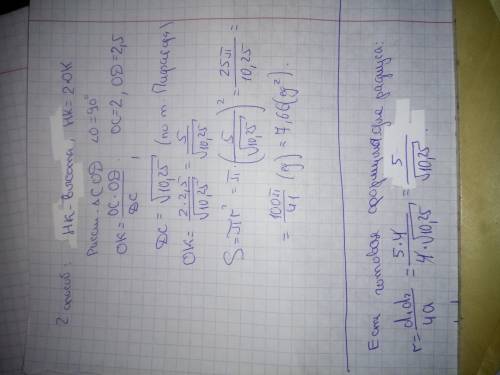 2 способ: НК-высота, НК=2·ОК
Рассм. ΔCOD ∠O=90° OC=2, OD=2,5
OK = OC·OD / DC ;
DC = √10,25 (по т. Пифагора)
OK = 2·2,5 / √10,25 = 5 / √10,25
S = πr² = π·(5 / √10,25)² = 25π / 10,25 =
= 100π / 41 (ед) = 7,66 (ед²).
Есть готовая формула для радиуса:
r = d₁d₂ / 4a = 5·4 / 4·√10,25 = 5 / √10,25 .